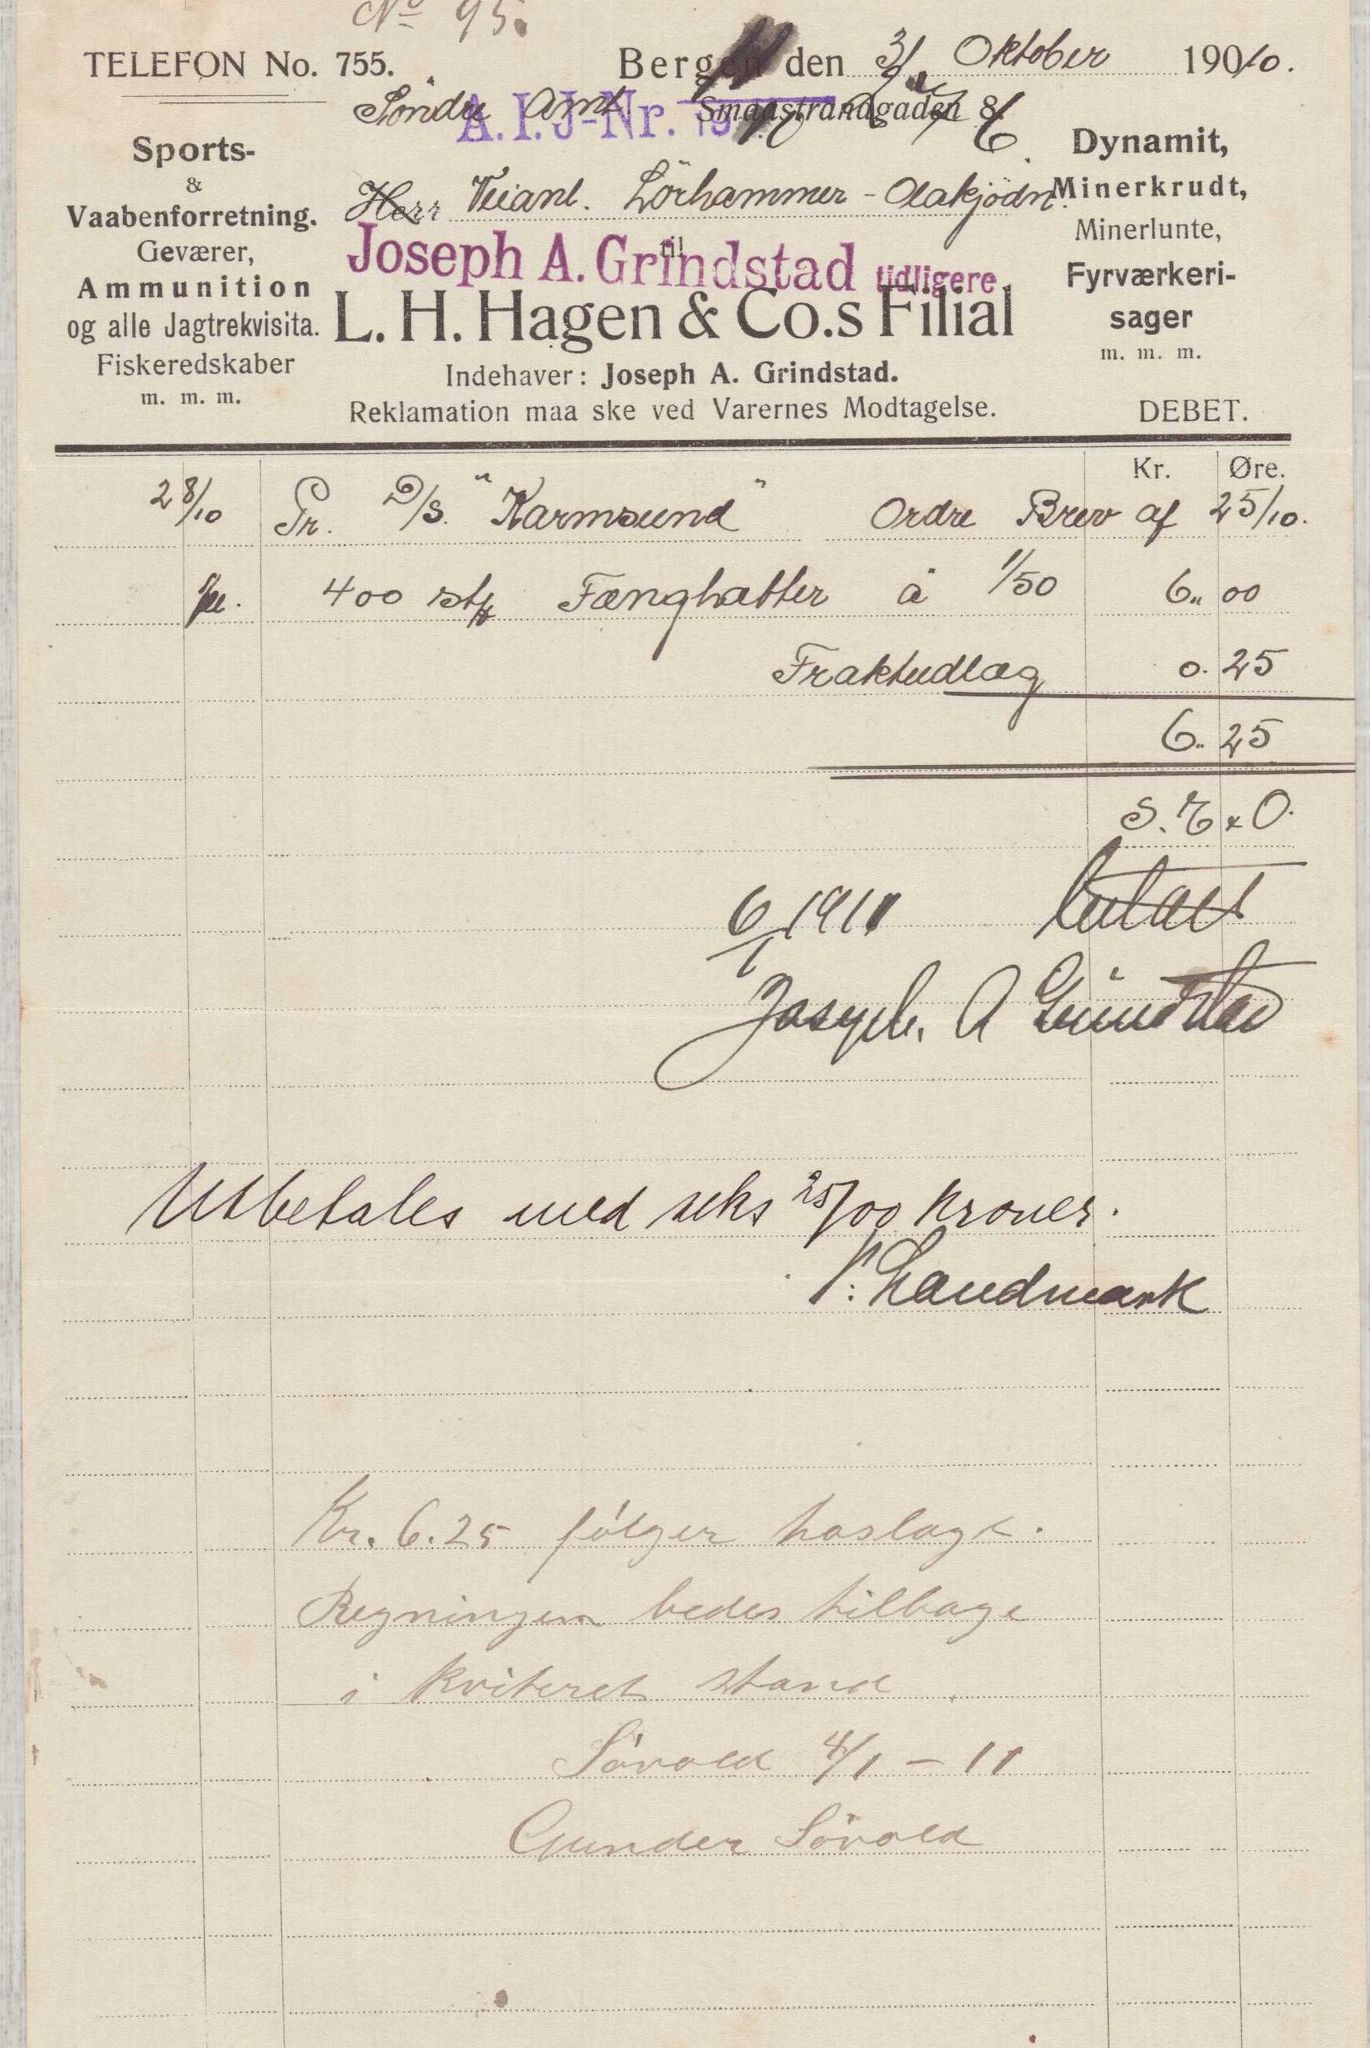 No 95.
TELEFON No. 755.
Bergen den 31 Oktober 19010.
Söndre Amt
Smaastrandgaden 8.
A. I. J-Nr.
Sports-
&
Vaabenforretning.
Geværer,
Ammunition
og alle Jagtrekvisita.
Fiskeredskaber
m. m. m.
Herr Veianl. Lörhammer - Aakjödn.
til
Joseph A. Grindstad tidligere
L. H. Hagen & Co.s Filial
Indehaver: Joseph A. Grindstad.
Reklamation maa ske ved Varernes Modtagelse.
Dynamit,
Minerkrudt,
Minerlunte,
Fyrværkeri-
sager
m. m. m.
DEBET.
Kr. Øre.
28/10 Pr. D/S. "Karmsund" Ordre Brev af 25/10.
400 stk Fænghætter á 1/50 6" 00
Fraktudlæg 0. 25
6.. 25
S. E & O.
6/1 1911 betalt
Joseph. A Grindstad
Utbetales med seks 25/00 kroner.
Landmark
Kr. 6.25 följer hoslagt.
Regningen bedes tilbage
i kviteret stand.
Sövold 4/1 - 11
Gunder Sövold